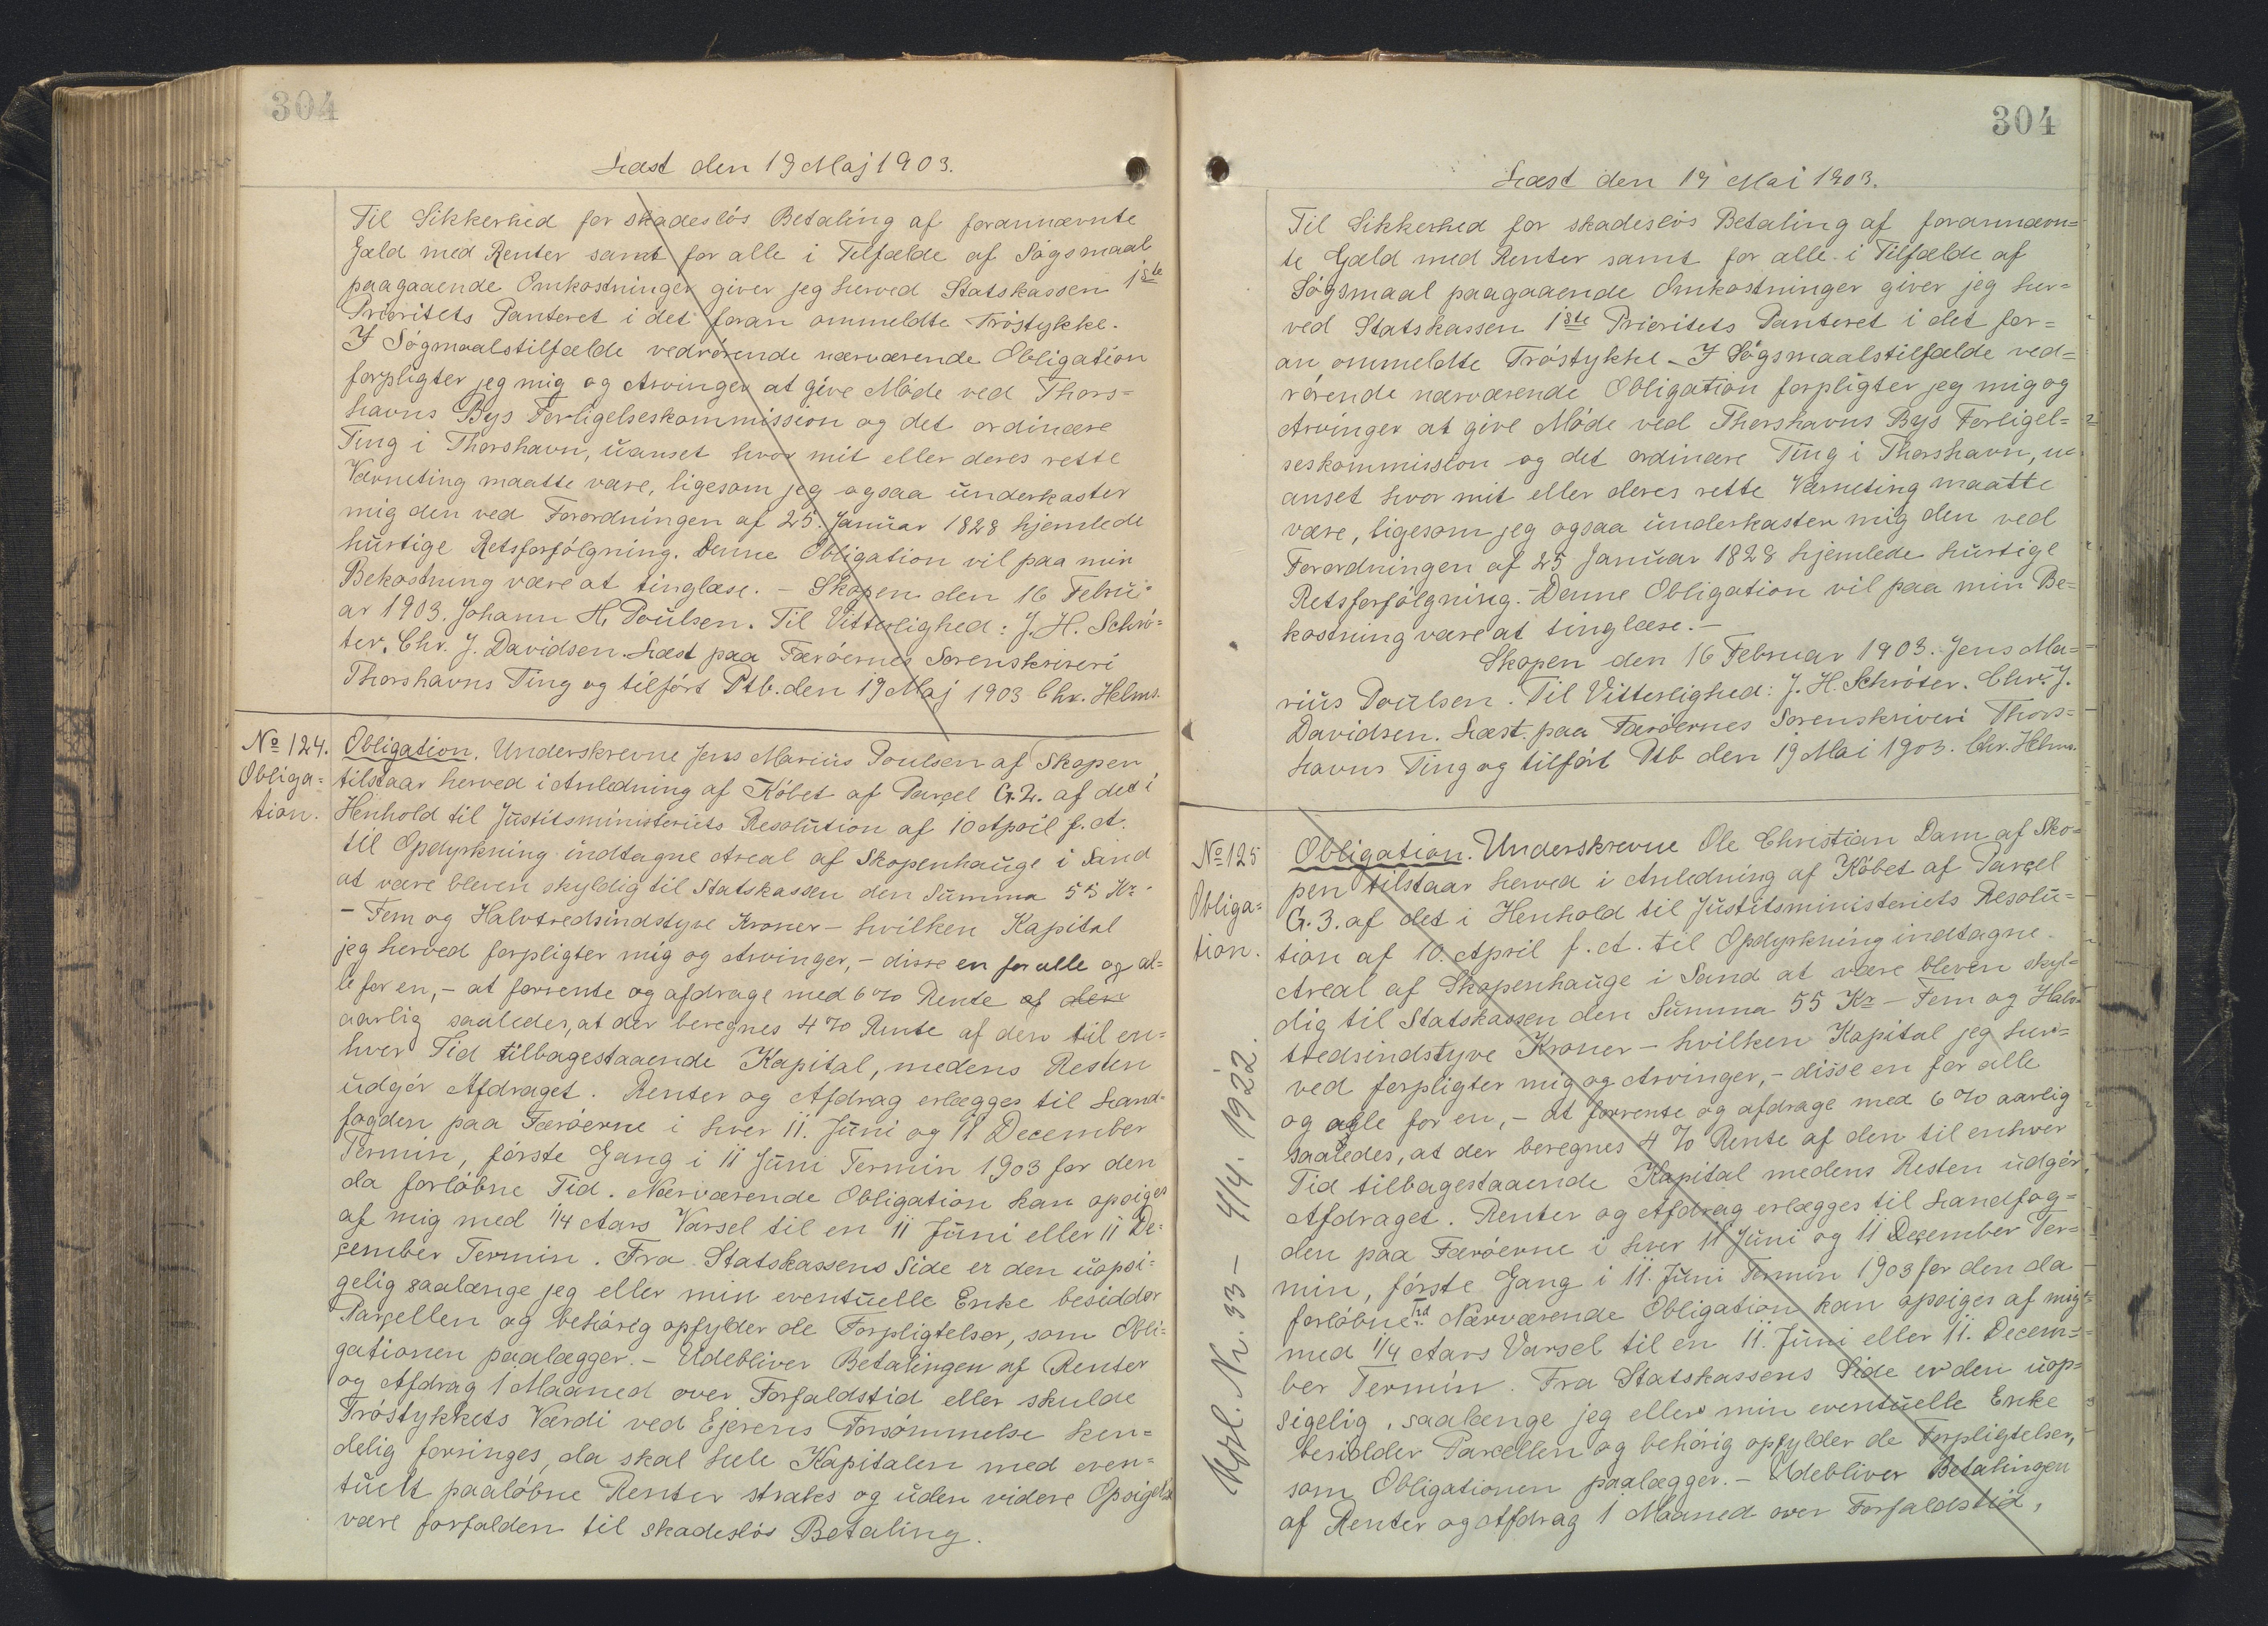 304
Læst den 19 Maj 1903.
Til Sikkerhed for skadesløs Betaling af forannævnte
Gæld med Renter samt for alle i Tilfælde af Søgsmaal
paagaaende Omkostninger giver jeg herved Statskassen 1ste
Prioritets Panteret i det foran ommeldte Trøstykke.
I Søgmaalstilfælde vedrørende nærværende Obligation
forpligter jeg mig og Arvinger at give Møde ved Thors=
havns Bys Forligelseskommission og det ordinære
Ting i Thorshavn, uanset hvor mit eller deres rette
Værneting maatte være, ligesom jeg ogsaa underkaster
mig den ved Forordningen af 25. Januar 1828 hjemlede
hurtige Retsforfølgning. Denne Obligation vil paa min
Bekostning være at tinglæse. - Skopen den 16 Febru=
ar 1903. Johann H. Poulsen. Til Vitterlighed: J. H. Schrö=
ter. Chr. J. Davidsen. Læst paa Færøernes Sorenskriveri
Thorshavns Ting og tilført Ptb. den 19 Maj 1903 Chr. Helms.
No 124.
Obliga=
tion.
Obligation. Underskrevne Jens Marius Poulsen af Skopen
tilstaar herved i Anledning af Købet af Parçel G.2. af det i
Henhold til Justitsministeriets Resolution af 10 April f. A.
til Opdyrkning indtagne Areal af Skopenhauge i Sand
at være bleven skyldig til Statskassen den Summa 55 Kr.
- Fem og Halvtredsindstyve Kroner - hvilken Kapital
jeg herved forpligter mig og Arvinger, - disse en for alle og al=
le for en, - at forrente og afdrage med 6 % Rente af den
aarlig saaledes, at der beregnes 4 % Rente af den til en=
hver Tid tilbagestaaende Kapital, medens Resten
udgør Afdraget. Renter og Afdrag erlægges til Land=
fogden paa Færøerne i hver 11. Juni og 11 December
Termin, første Gang i 11 Juni Termin 1903 for den
da forløbne Tid. Nærværende Obligation kan opsiges
af mig med 1/4 Aars Varsel til en 11 Juni eller 11 De=
çember Termin. Fra Statskassens Side er den uopsi=
gelig saalænge jeg eller min eventuelle Enke besidder
Parçellen og behørig opfylder de Forpligtelser, som Obli=
gationen paalægger. - Udebliver Betalingen af Renter
og Afdrag 1 Maaned over Forfaldstid eller skulde
Trøstykkets Værdi ved Ejerens Forsømmelse ken=
delig forringes, da skal hele Kapitalen med even=
tuelt paaløbne Renter straks og uden videre Opsigelse
være forfalden til skadesløs Betaling.
304
Læst den 19 Mai 1903.
Til Sikkerhed for skadesløs Betaling af forannævn=
te Gæld med Renter samt for alle i Tilfælde af
Søgsmaal paagaaende Omkostninger giver jeg her=
ved Statskassen 1ste Prioritets Panteret i det for=
an ommeldte Trøstykke. - I Søgsmaalstilfælde ved=
rørende nærværende Obligation forpligter jeg mig og
Arvinger at give Møde ved Thorshavns Bys Forligel=
seskommission og det ordinære Ting i Thorshavn, u=
anset hvor mit eller deres rette Værneting maatte
være, ligesom jeg ogsaa underkaster mig den ved
Forordningen af 25 Januar 1828 hjemlede hurtige
Retsforfølgning. - Denne Obligation vil paa min Be=
kostning være at tinglæse. -
Skopen den 16 Februar 1903. Jens Ma=
rius Poulsen. Til Vitterlighed: J. H. Schröter. Chr. J.
Davidsen. Læst paa Færøernes Sorenskriveri Thors=
havns Ting og tilført Ptb den 19 Mai 1903. Chr. Helms.
No 125
Obliga=
tion.
Obligation. Underskrevne Ole Christian Dam af Sko=
pen tilstaar herved i Anledning af Købet af Parçel
G. 3. af det i Henhold til Justitsministeriets Resolu=
tion af 10. April f. A. til Opdyrkning indtagne
Areal af Skopenhauge i Sand at være bleven skyl=
dig til Statskassen den Summa 55 Kr - Fem og Halv=
tredsindstyve Kroner - hvilken Kapital jeg her=
ved forpligter mig og Arvinger, - disse en for alle
og alle for en, - at forrente og afdrage med 6 % aarlig
saaledes, at der beregnes 4 % Rente af den til enhver
Tid tilbagestaaende Kapital medens Resten udgør
Afdraget. Renter og Afdrag erlægges til Landfog=
den paa Færøerne i hver 11 Juni og 11 Deçember Ter=
min, første Gang i 11. Juni Termin 1903 for den da
forløbne Tid. Nærværende Obligation kan opsiges af mig
med 1/4 Aars Varsel til en 11. Juni eller 11. Decem=
ber Termin. Fra Statskassens Side er den uop=
sigelig, saalænge jeg eller min eventuelle Enke
besidder Parcellen og behørig opfylder de Forpligtelser,
som Obligationen paalægger. - Udebliver Betalingen
af Renter og Afdrag 1 Maaned over Forfaldstid,
Nr. 33 - 4/4. 1922.